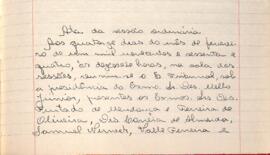 Ata da sessão ordinária
Aos quatorze dias do mês de feverei-
ro de um mil novecentos e sessenta e
quatro, às dezesseis horas, na sala das
sessões, reuniu-se o E. Tribunal, sob
a presidência do Exmo. Sr. Des. Mello
Junior, presentes os Exmos. Srs. Des.
Furtado de Mendonça e Ferreira de
Oliveira, Drs. Moreira de Almeida,
Samuel Werneck, Valle Ferreira e